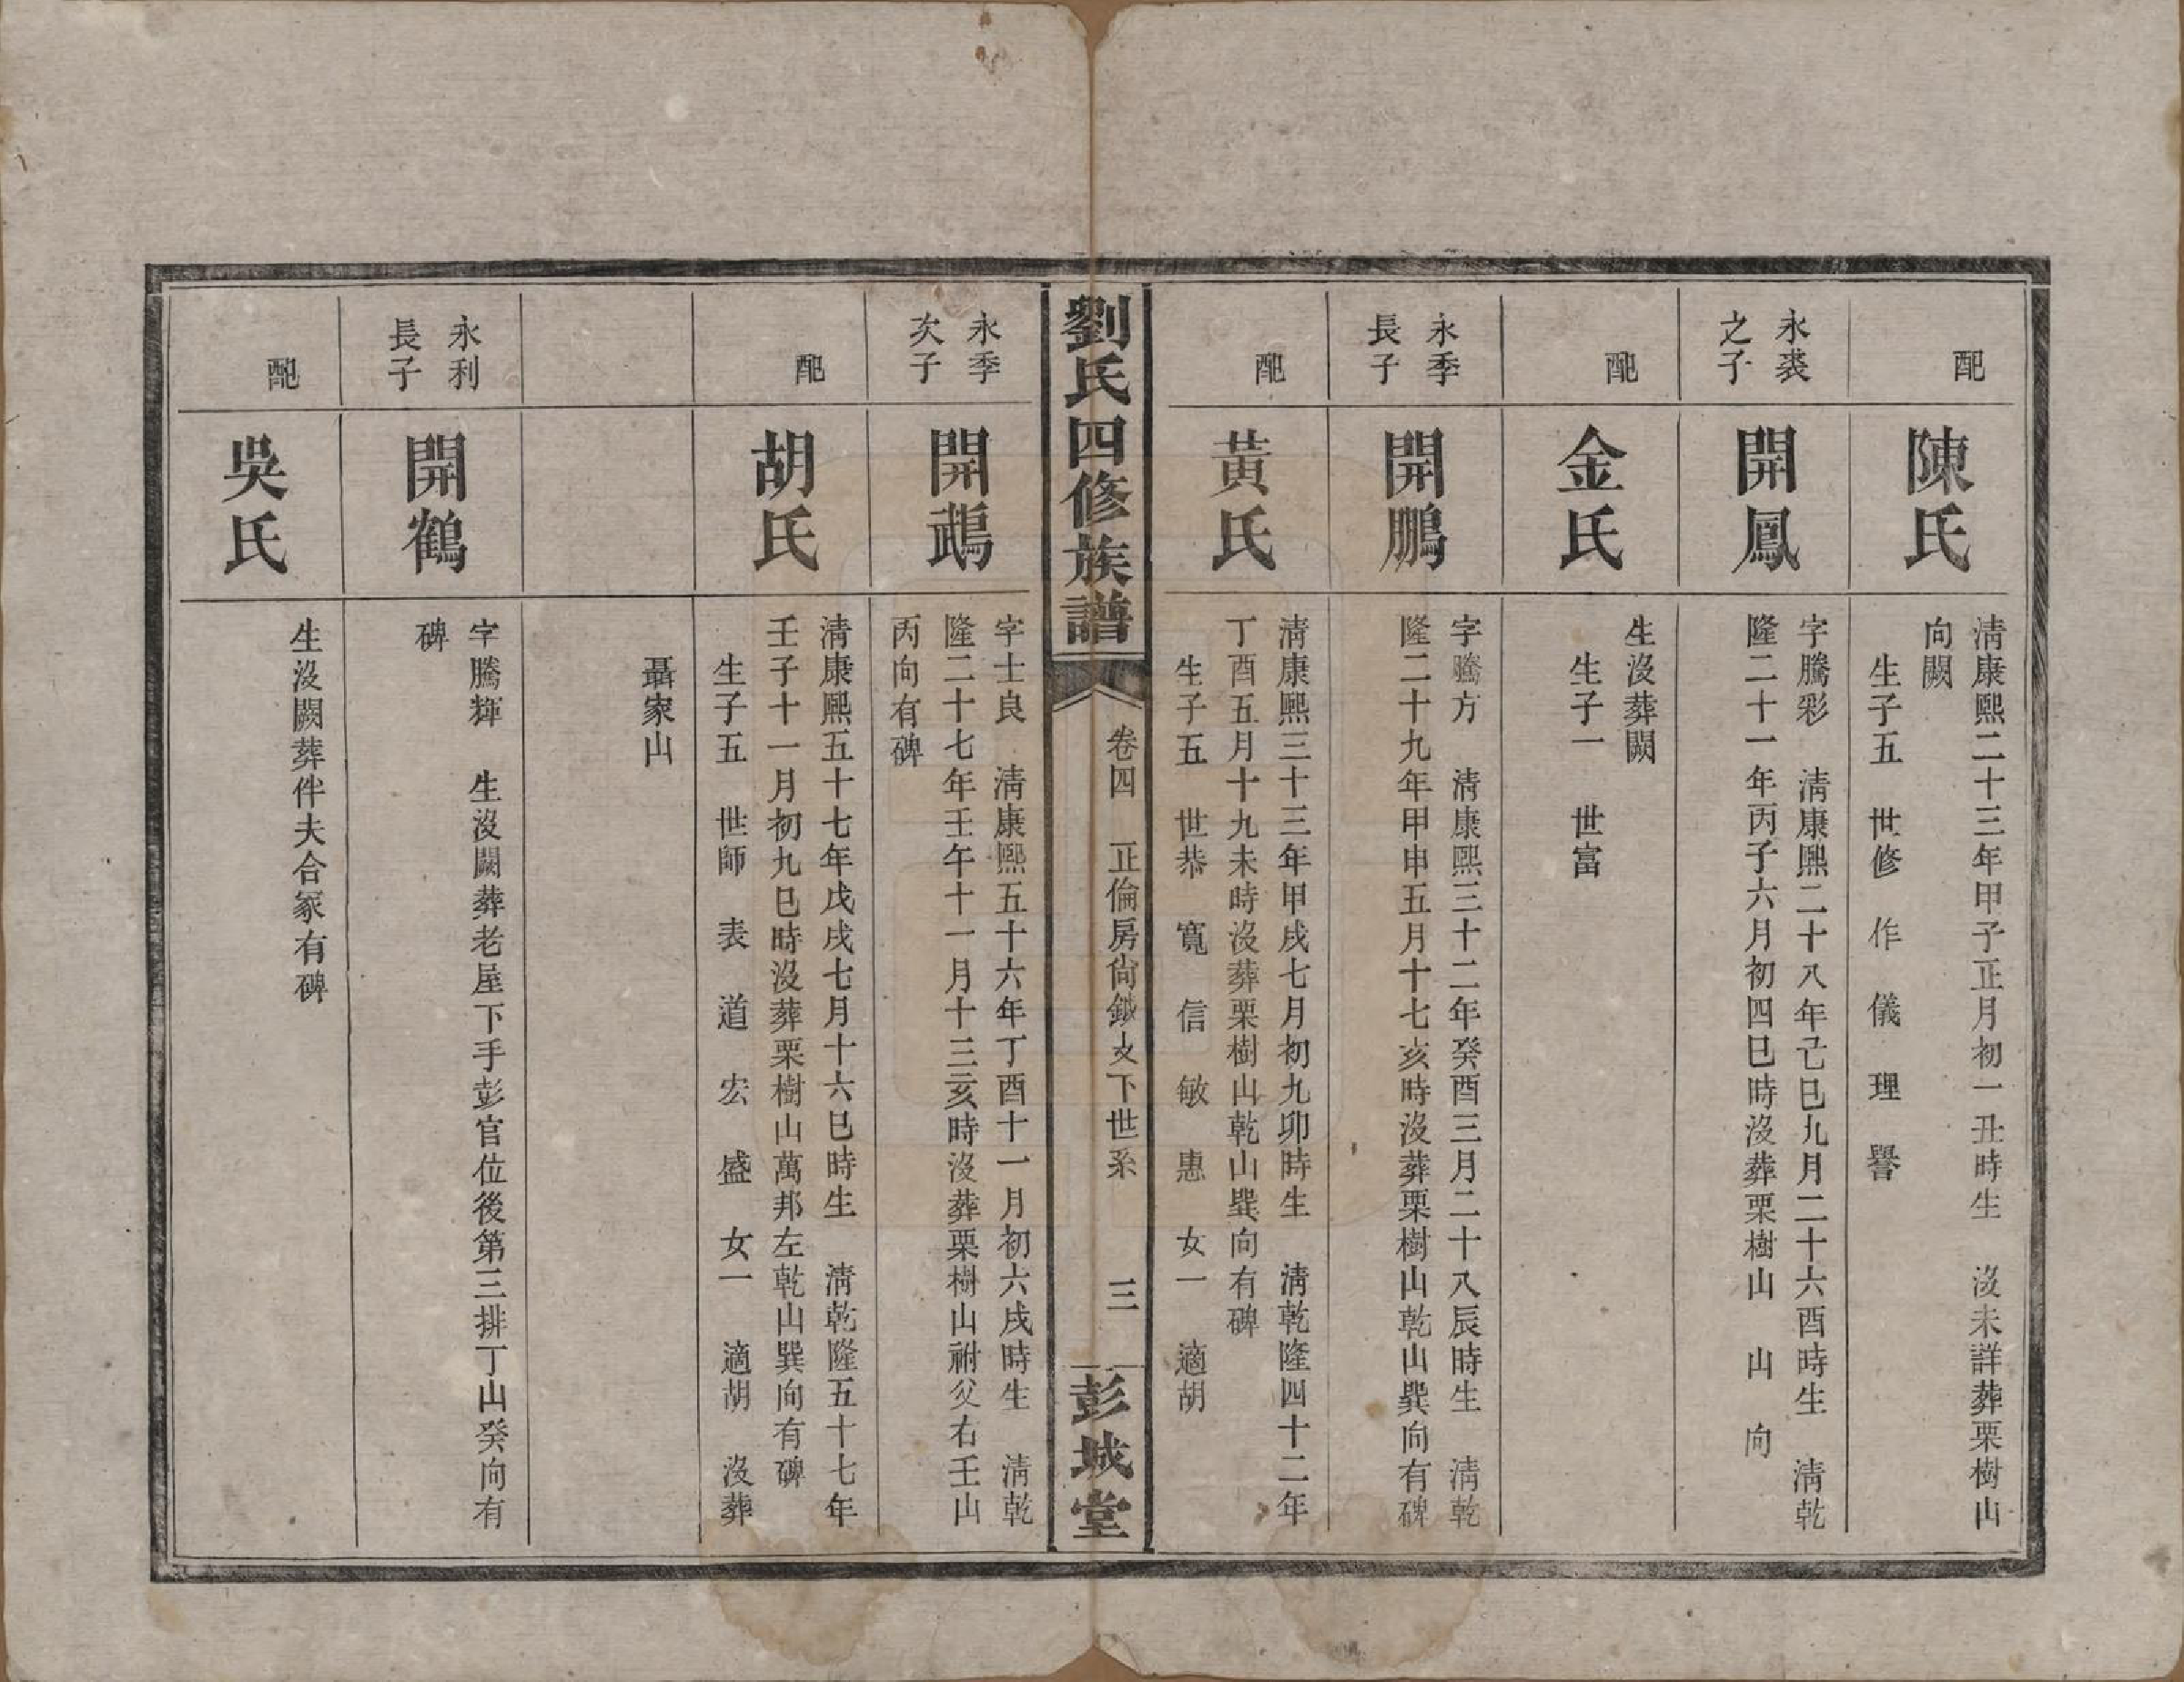 配
陳氏
清康熙二十三年甲子正月初一丑時生　沒未詳葬栗樹山
向闕
生子五　世修　作　儀　理　譽
永裘
之子
開鳳
字騰彩　清康熙二十八年己巳九月二十六酉時生　清乾
隆二十一年丙子六月初四巳時沒葬栗樹山　山　向
配
金氏
生沒葬闕
生子一　世富
永季
長子
開鵬
字騰方　清康熙三十二年癸酉三月二十八辰時生　清乾
隆二十九年甲申五月十七亥時沒葬栗樹山乾山巽向有碑
配
黃氏
清康熙三十三年甲戌七月初九卯時生　清乾隆四十二年
丁酉五月十九未時沒葬栗樹山乾山巽向有碑
生子五　世恭　寬　信　敏　惠　女一　適胡
劉氏四修族譜
卷四　正倫房尙鉞文下世系　三
彭城堂
永季
次子
開鵡
字士良　清康熙五十六年丁酉十一月初六戌時生　清乾
隆二十七年壬午十一月十三亥時沒葬栗樹山祔父右壬山
丙向有碑
配
胡氏
清康熙五十七年戊戌七月十六巳時生　清乾隆五十七年
壬子十一月初九巳時沒葬栗樹山萬邦左乾山巽向有碑
生子五　世師　表　道　宏　盛　女一　適胡　沒葬
聶家山
永利
長子
開鶴
字騰輝　生沒闕葬老屋下手彭官位後第三排丁山癸向有
碑
配
吳氏
生沒闕葬伴夫合冢有碑